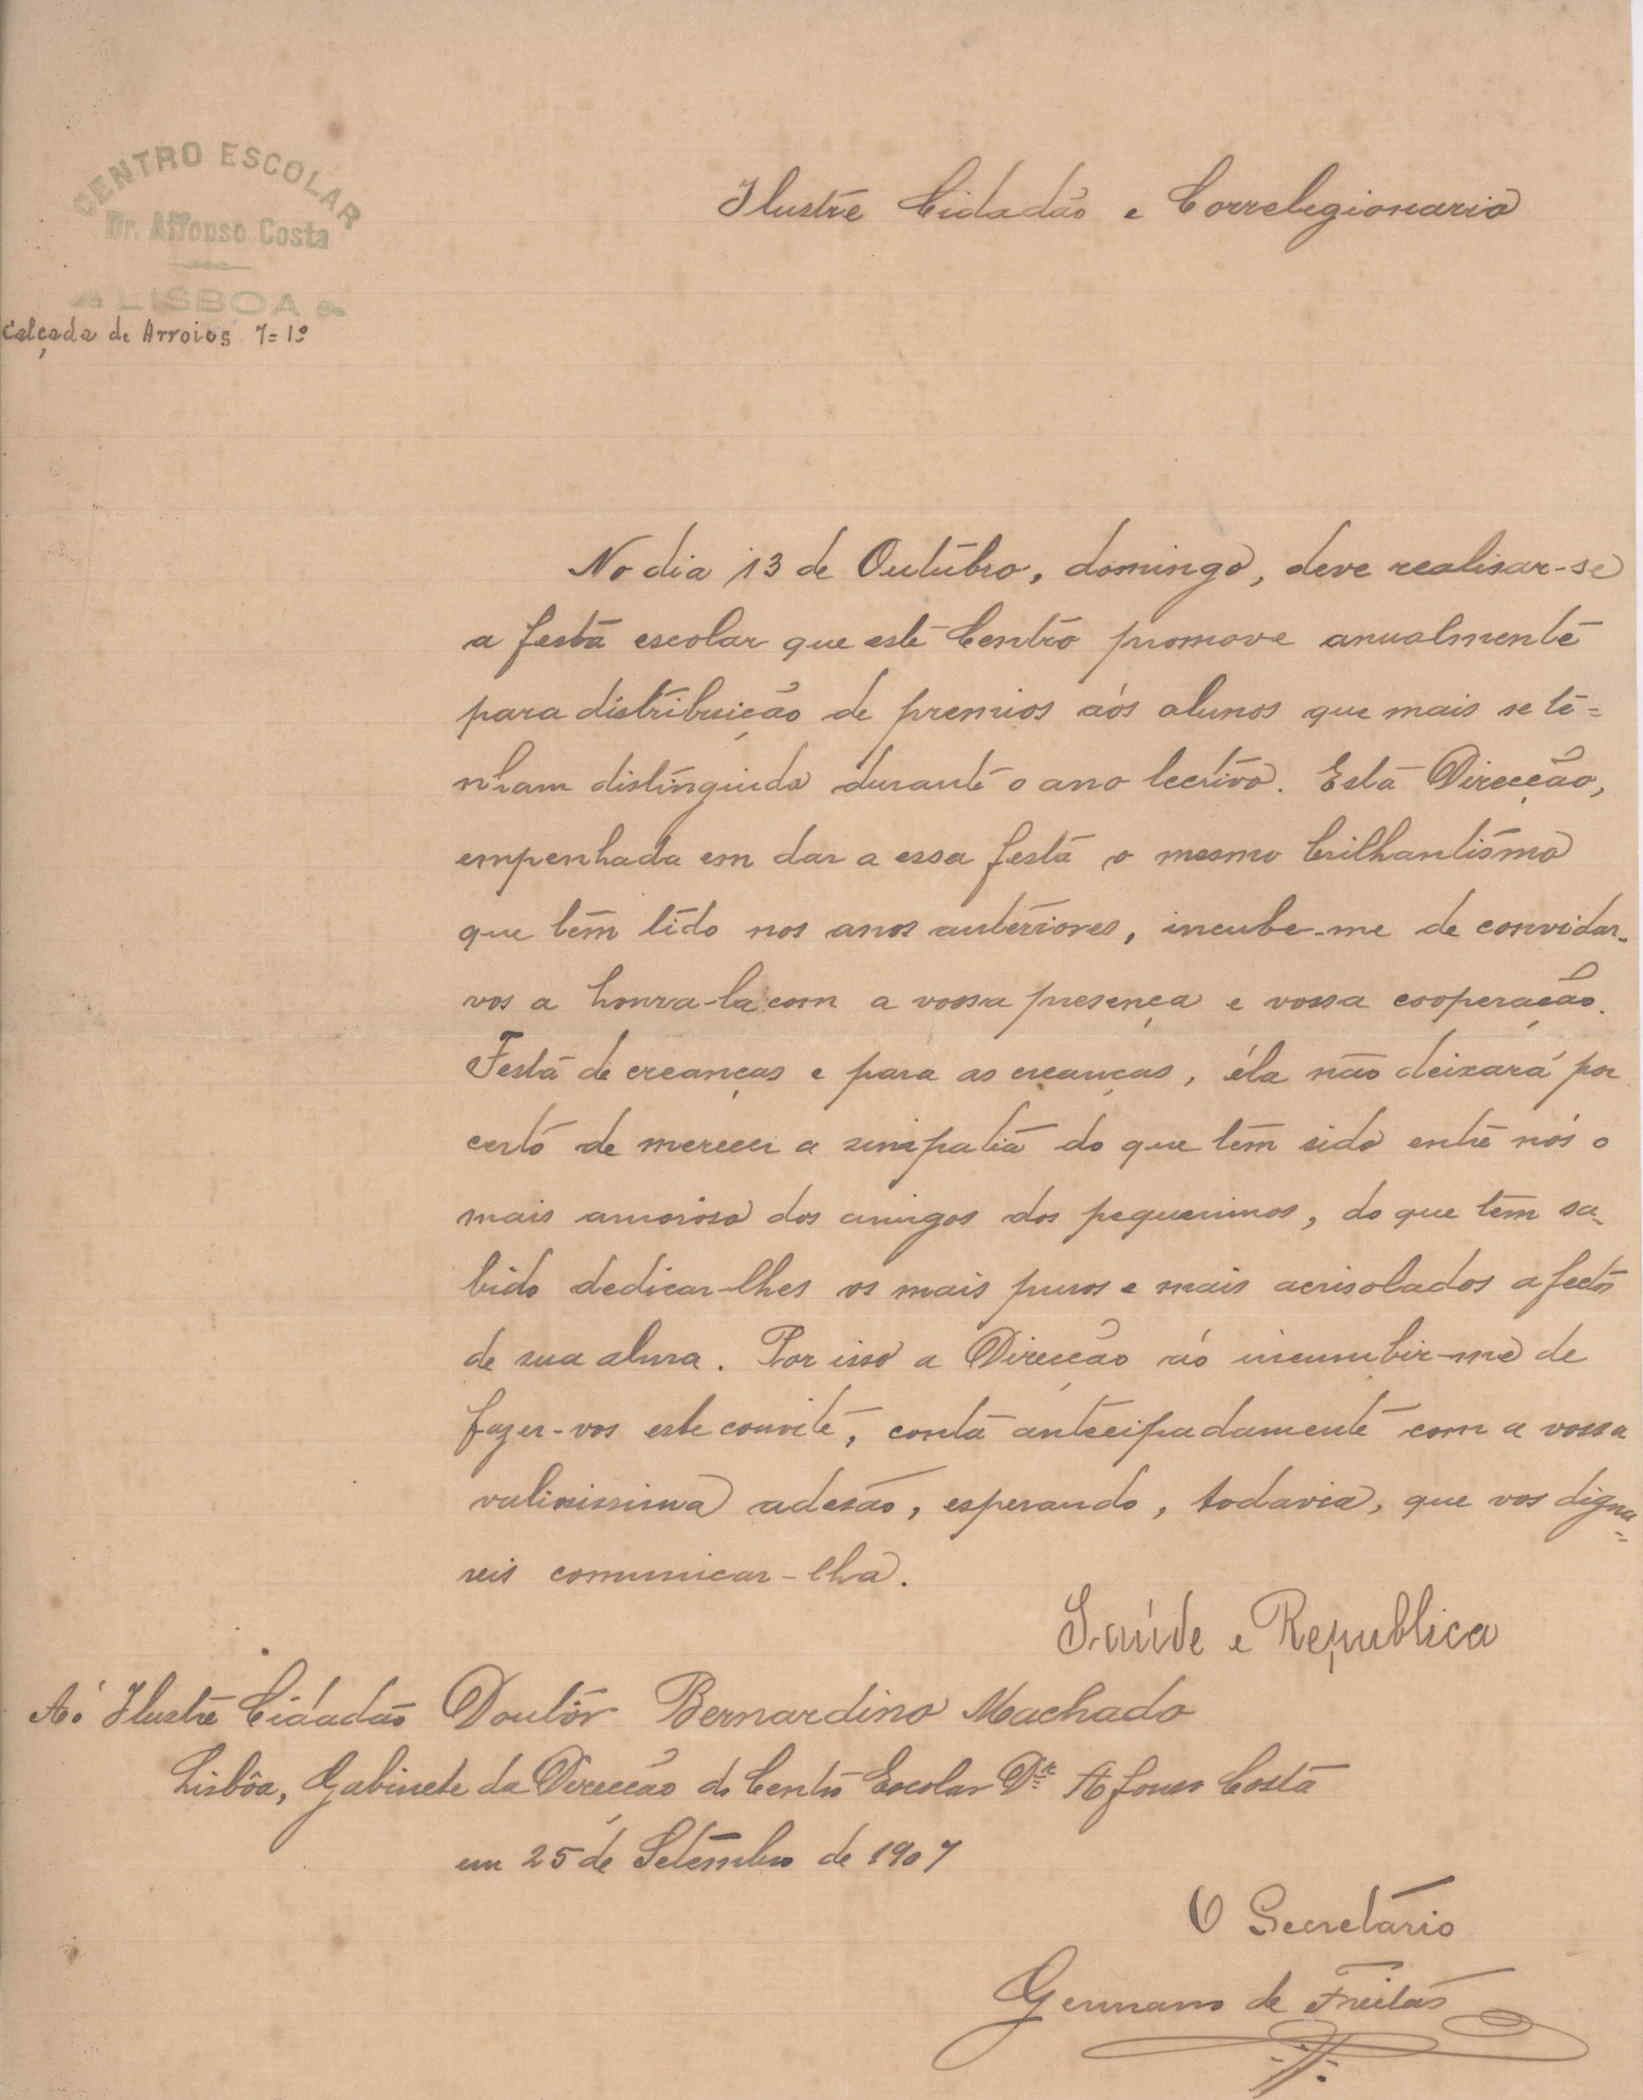 CENTRO ESCOLAR
Dr. Affonso Costa
LISBOA
Calçada de Arroios 7=1º
Ilustre Cidadão e Correlegionario
No dia 13 de Outubro, domingo, deve realisar-se
a festa escolar que este Centro promove anualmente
para distribuição de premios aós alunos que mais se te=
nham distinguido durante o ano lectivo. Esta Direcção,
empenhada em dar a essa festa o mesmo brilhantismo
que tem tido nos anos anteriores, incube-me de convidar-
vos a honra-la com a vossa presença e vossa cooperação.
Festa de creanças e para as creanças, éla não deixará por
certo de merecer a simpatia do que tem sido entre nós o
mais amoroso dos amigos dos pequeninos, do que tem sa-
bido dedicar-lhes os mais puros e mais acrisolados afectos
de sua alma. Por isso a Direcção aó incumbir-me de
fazer-vos este convite, conta antecipadamente com a vossa
valiosissima adesão, esperando, todavia, que vos digna=
reis comunicar-lha.
Saúde e Republica
Aó Ilustre Cidadão Doutôr Bernardino Machado
Lisbôa, Gabinete da Direcção do Centro Escolar Dr. Afonso Costa
em 25 de Setembro de 1907
O Secretário
Germano de Freitas